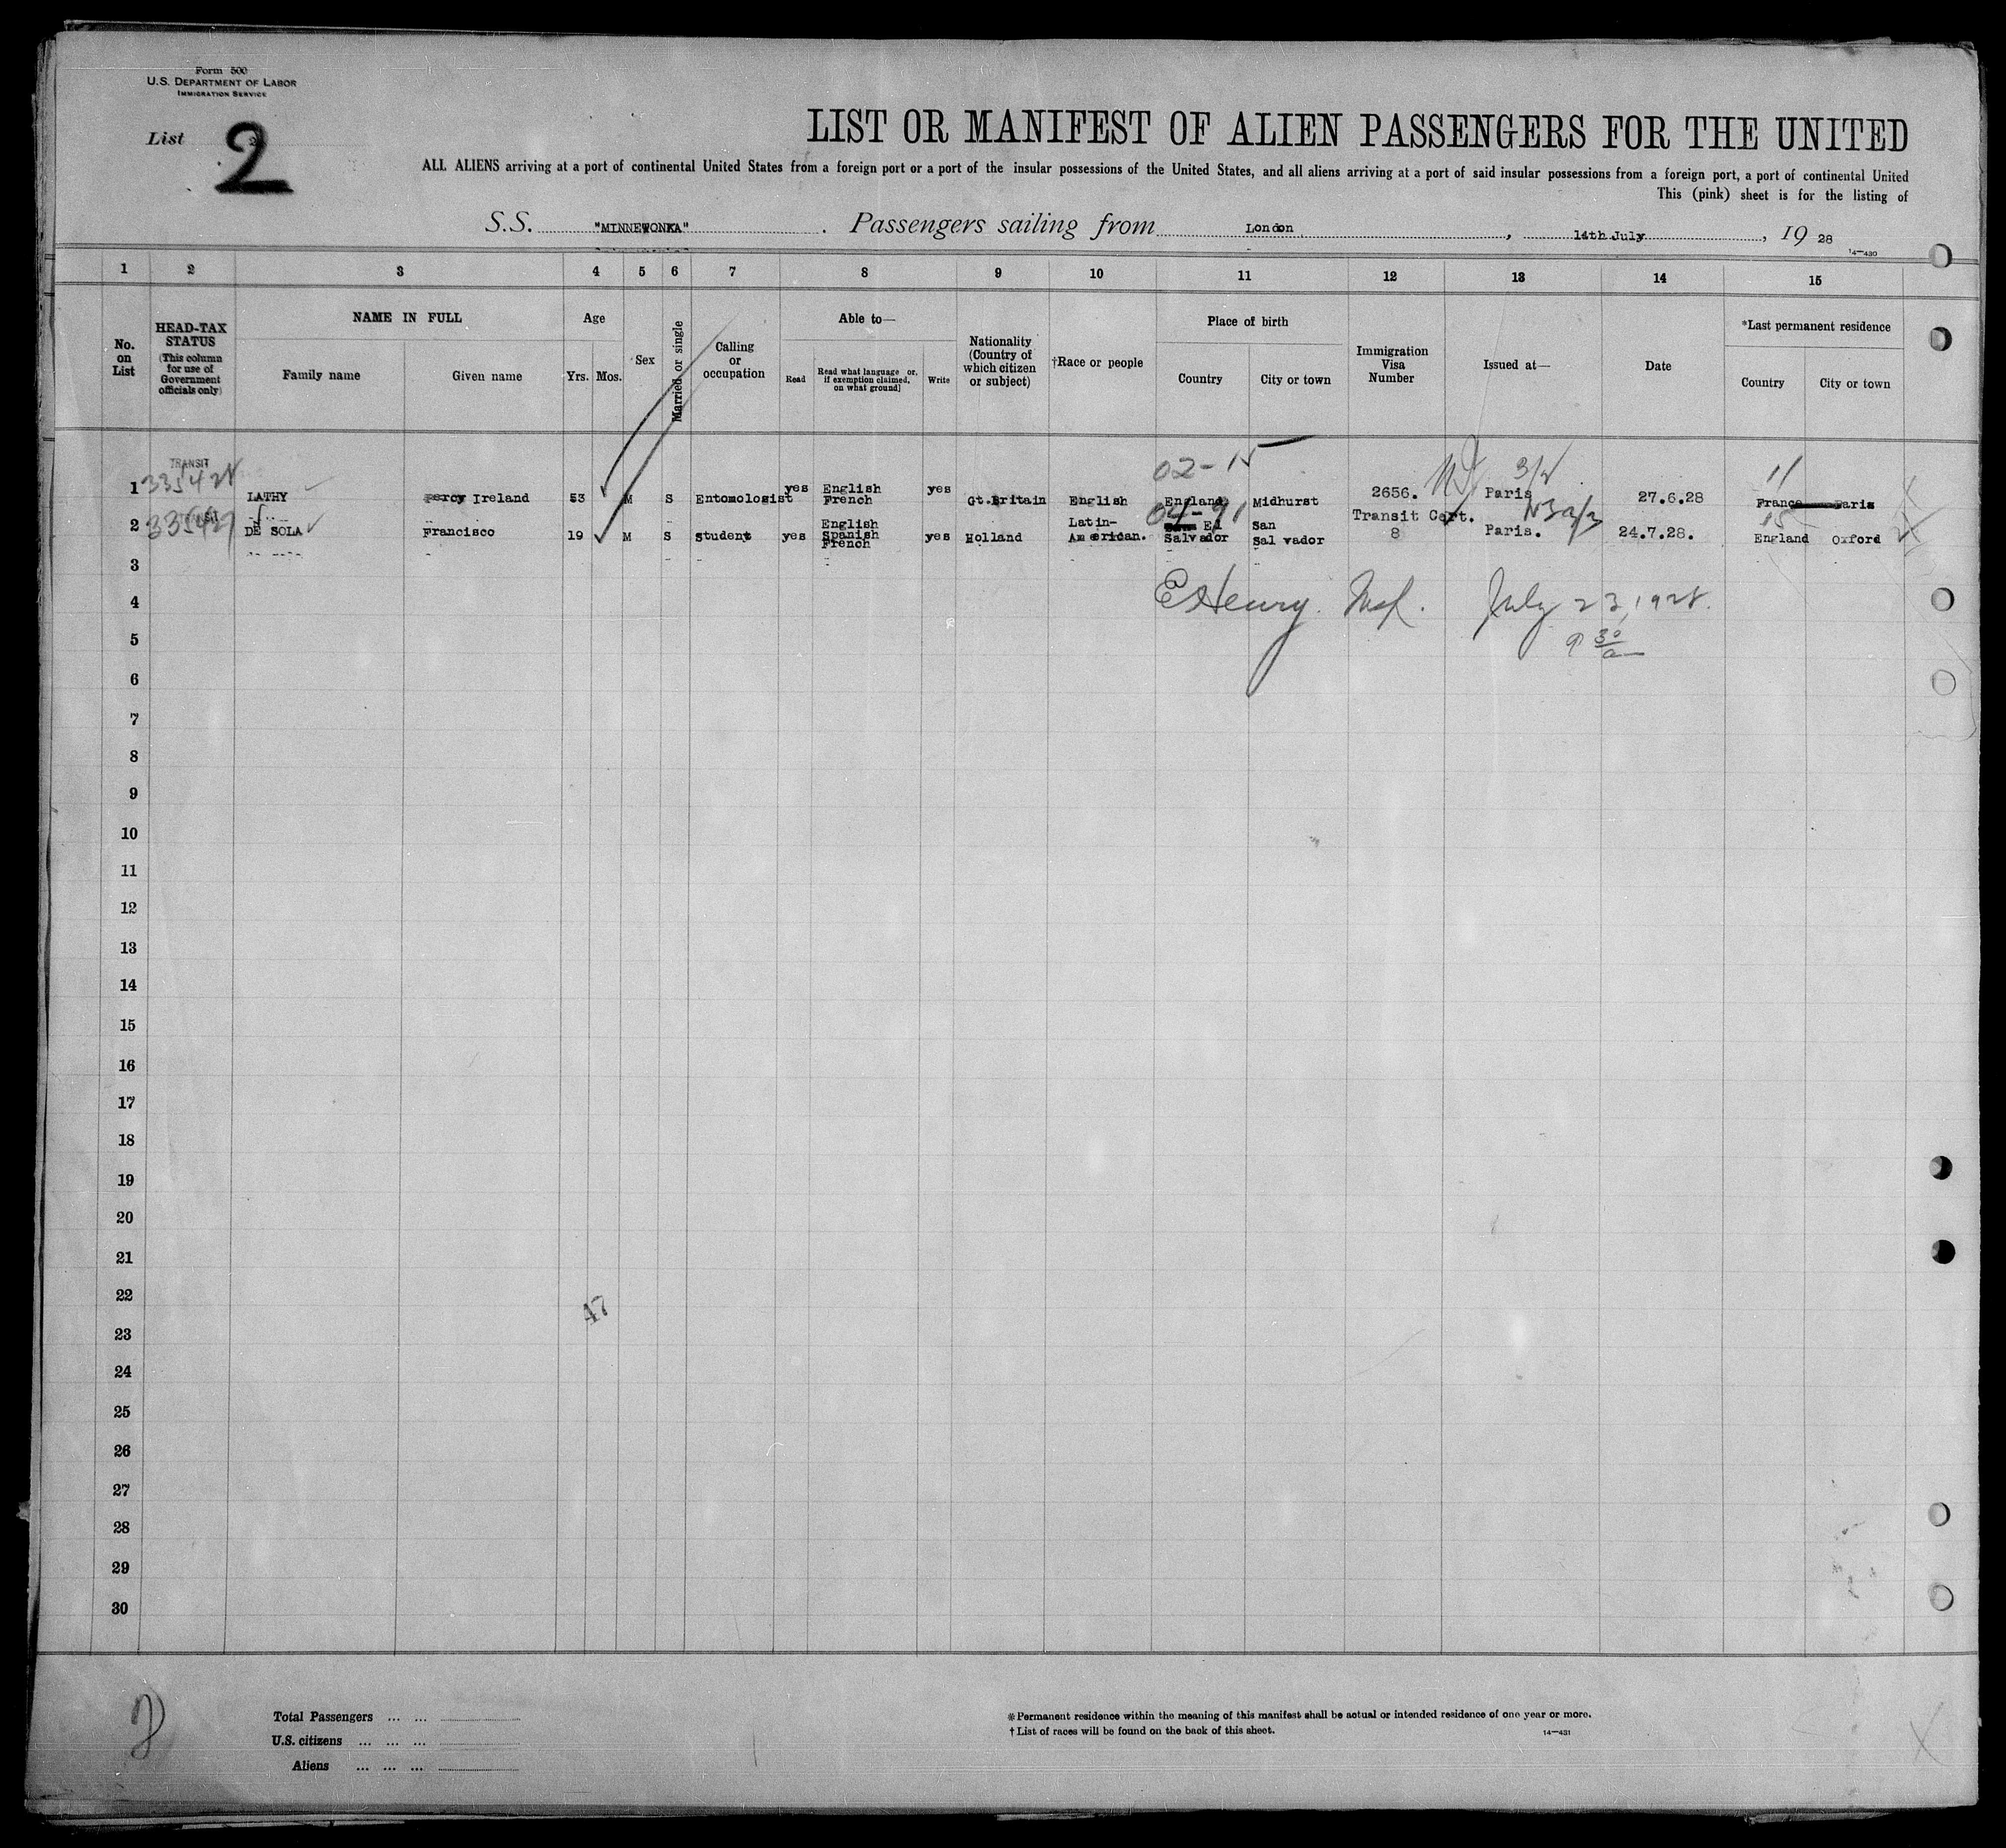 Form 500
U.S. DEPARTMENT OF LABOR
IMMIGRATION SERVICE
List 2
LIST OR MANIFEST OF ALIEN PASSENGERS FOR THE UNITED
ALL ALIENS arriving at a port of continental United States from a foreign port or a port of the insular possessions of the United States, and all aliens arriving at a port of said insular possessions from a foreign port, a port of continental United
This (pink) sheet is for the listing of
S.S. "MINNEWONKA". Passengers sailing from London, 14th July, 19 28
14—430
1 2 3 4 5 6 7 8 9 10 11 12 13 14 15
No. on List
HEAD-TAX STATUS
(This column for use of Government officials only)
NAME IN FULL
Family name
Given name
Age
Yrs.
Mos.
Sex
Married or single
Calling or occupation
Able to—
Read
Read what language or, if exemption claimed, on what ground]
Write
Nationality (Country of which citizen or subject)
†Race or people
Place of birth
Country
City or town
Immigration Visa Number
Issued at—
Date
*Last permanent residence
Country
City or town
TRANSIT
02-15
3/2
11
1 LATHY Percy Ireland 53 M S Entomologist yes English French yes Gt.Britain English England Midhurst 2656. Paris 27.6.28 France Paris
04-91
15
2 DE SOLA Francisco 19 M S Student yes English Spanish French yes Holland Latin-American. El Salvador San Salvador Transit Cert. 8 Paris. 24.7.28. England Oxford
3
4 E Henry. Insp. July 23, 1928.
5 9 30 a
6
7
8
9
10
11
12
13
14
15
16
17
18
19
20
21
22
47
23
24
25
26
27
28
29
30
Total Passengers ... ...
U.S. citizens ... ... ...
Aliens ... ... ...
*Permanent residence within the meaning of this manifest shall be actual or intended residence of one year or more.
†List of races will be found on the back of this sheet.
14—431